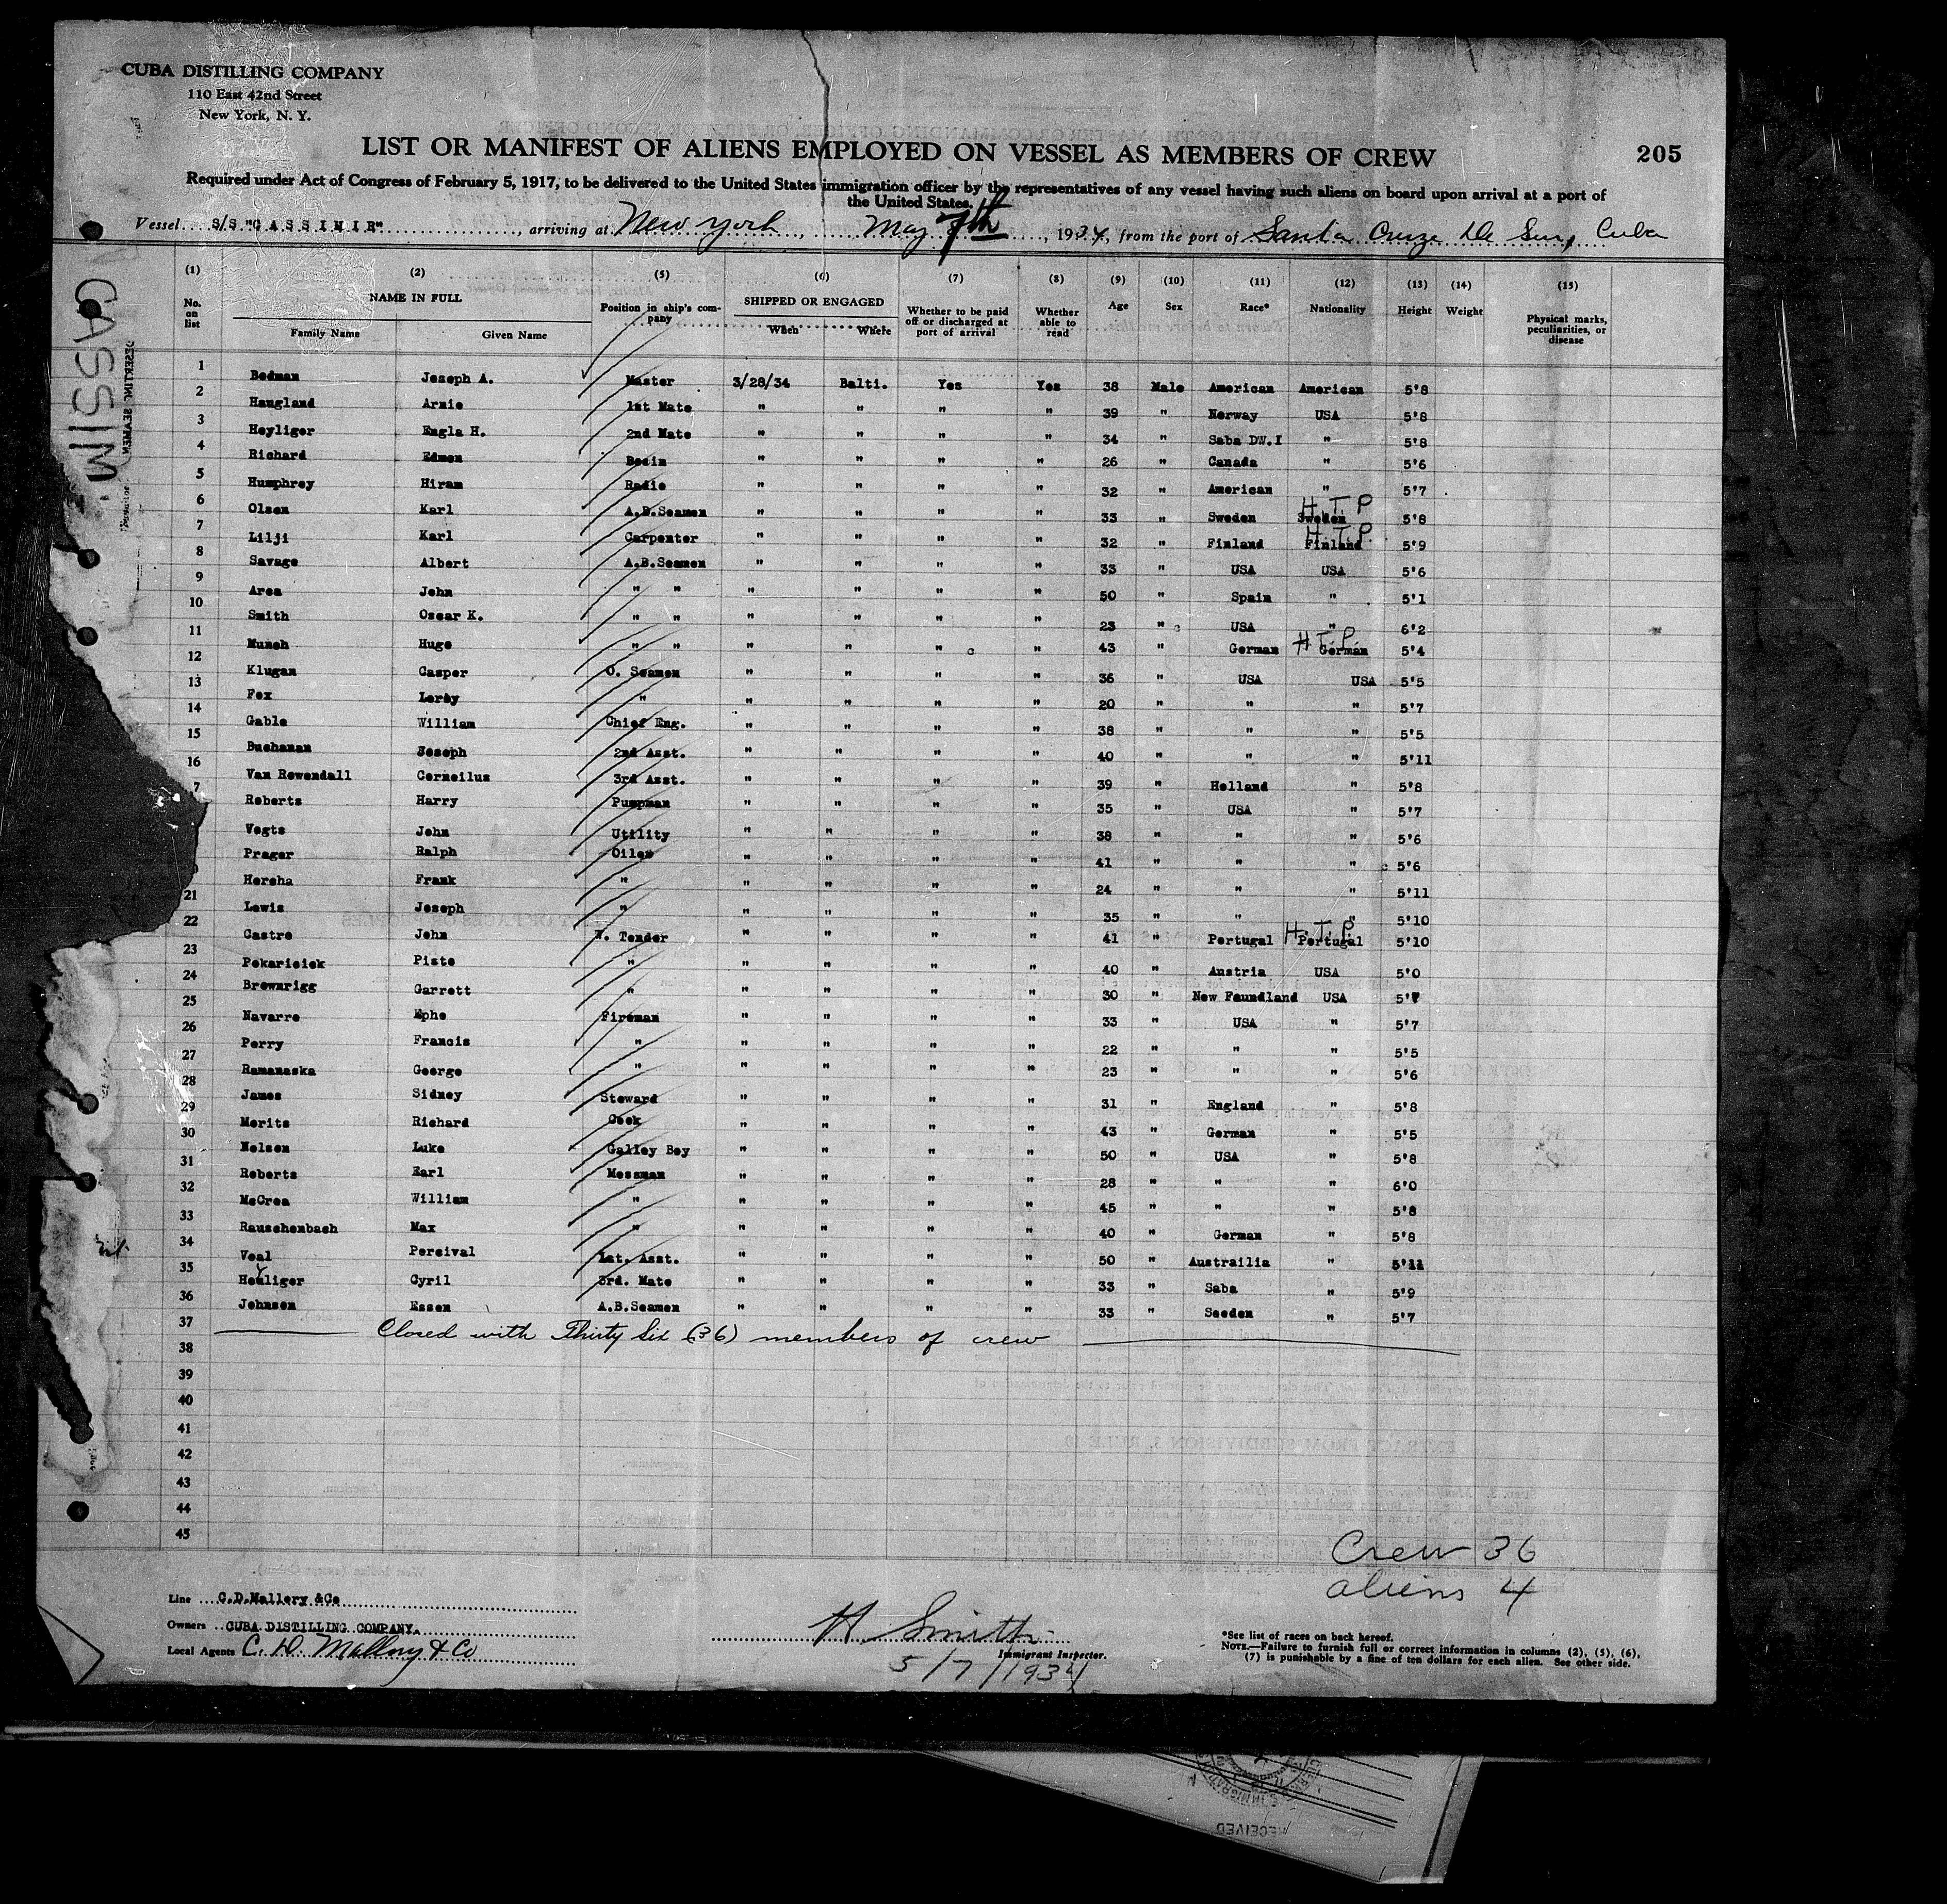 CUBA DISTILLING COMPANY
110 East 42nd Street
New York, N. Y.
LIST OR MANIFEST OF ALIENS EMPLOYED ON VESSEL AS MEMBERS OF CREW 205
Required under Act of Congress of February 5, 1917, to be delivered to the United States immigration officer by the representatives of any vessel having such aliens on board upon arrival at a port of
the United States.
Vessel S/S "CASSIMIR", arriving at New York, May 7th, 1934, from the port of Santa Cruze De Sur, Cuba
CASSIM
DESERTING SEAMEN
(1) (2) (5) (6) (7) (8) (9) (10) (11) (12) (13) (14) (15)
No. on list NAME IN FULL Family Name Given Name Position in ship's company SHIPPED OR ENGAGED When Where Whether to be paid off or discharged at port of arrival Whether able to read Age Sex Race* Nationality Height Weight Physical marks, peculiarities, or disease
1 Bedman Joseph A. Master 3/28/34 Balti. Yes Yes 38 Male American American 5'8
2 Haugland Arnie 1st Mate " " " " 39 " Norway USA 5'8
3 Heyliger Engla H. 2nd Mate " " " " 34 " Saba DW.I " 5'8
4 Richard Edmon Bosin " " " " 26 " Canada " 5'6
5 Humphrey Hiram Radio " " " " 32 " American " 5'7
6 Olsen Karl A.B.Seamen " " " " 33 " Sweden Sweden H.T.P 5'8
7 Lilji Karl Carpenter " " " " 32 " Finland Finland H.T.P. 5'9
8 Savage Albert A.B.Seamen " " " " 33 " USA USA 5'6
9 Area John " " " " " " 50 " Spain " 5'1
10 Smith Oscar K. " " " " " " 23 " USA " 6'2
11 Munch Hugo " " " " " " 43 " German German H.T.P. 5'4
12 Klugan Casper O. Seamen " " " " 36 " USA USA 5'5
13 Fox Leroy " " " " " 20 " " " 5'7
14 Gable William Chief Eng. " " " " 38 " " " 5'5
15 Buchanan Joseph 2nd Asst. " " " " 40 " " " 5'11
16 Van Rowendall Corneilus 3rd Asst. " " " " 39 " Holland " 5'8
7 Roberts Harry Pumpman " " " " 35 " USA " 5'7
Vogts John Utility " " " " 38 " " " 5'6
Prager Ralph Oiler " " " " 41 " " " 5'6
Hersha Frank " " " " " 24 " " " 5'11
21 Lewis Joseph " " " " " 35 " " " 5'10
22 Castro John W. Tender " " " " 41 " Portugal Portugal H.T.P. 5'10
23 Pekarisick Piste " " " " " 40 " Austria USA 5'0
24 Brewnrigg Garrett " " " " " 30 " New Faundland USA 5'7
25 Navarro Ephe Fireman " " " " 33 " USA " 5'7
26 Perry Francis " " " " " 22 " " " 5'5
27 Ramanaska George " " " " " 23 " " " 5'6
28 James Sidney Steward " " " " 31 " England " 5'8
29 Morits Richard Cook " " " " 43 " German " 5'5
30 Nelson Luke Galley Boy " " " " 50 " USA " 5'8
31 Roberts Earl Messman " " " " 28 " " " 6'0
32 McCrea William " " " " " 45 " " " 5'8
33 Rauschenbach Max " " " " " 40 " German " 5'8
34 Veal Percival 1st. Asst. " " " " 50 " Austrailia " 5'11
35 Heyliger Cyril 3rd. Mate " " " " 33 " Saba " 5'9
36 Johnson Essen A.B.Seamen " " " " 33 " Seeden " 5'7
37 Closed with Thirty Six (36) members of crew
38
39
40
41
42
43
44
45
Crew 36
aliens 4
Line C.D.Mallory &Co
Owners CUBA DISTILLING COMPANY.
Local Agents C. D. Mallory & Co
H Smith
Immigrant Inspector.
5/7/1934
*See list of races on back hereof.
NOTE.—Failure to furnish full or correct information in columns (2), (5), (6),
(7) is punishable by a fine of ten dollars for each alien. See other side.
RECEIVED